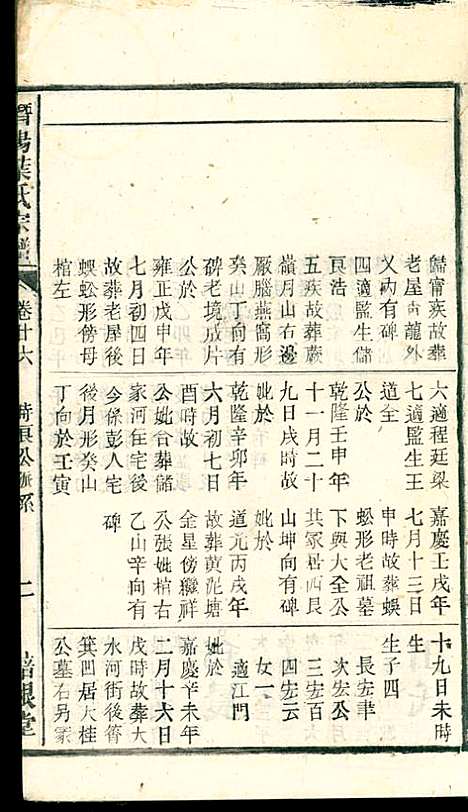 歸甯疾故葬
老屋 龍外
又內有碑
四適監生儲
良浩
五疾故葬蕨
嶺月山右邊
厥腦燕窩形
癸山丁向有
碑老境成片
公於
雍正戊申年
七月初四日
故葬老屋後
蜈蚣形傍母
棺左
六適程廷梁
七適監生王
道全
公於
乾隆壬申年
十一月二十
九日戌時故
妣於
乾隆辛卯年
六月初七日
酉時故
公妣合葬儲
家河在宅後
今係彭人宅
後月形癸山
丁向於壬寅
嘉慶壬戌年
七月十三日
申時故葬蜈
蚣形老祖墓
下與大全公
共冢居西艮
山坤向有碑
妣於
道光丙戌年
故葬黃泥塘
金星傍驥祥
公張妣棺右
乙山辛向有
碑
十九日未時
生
生子四
長安聿
次安公
三安百
四安云
女一
適江門
妣於
嘉慶辛未年
二月十六日
戌時故葬大
水河街後箭
箕凹居大桂
公墓右另冢
潛陽葉氏宗譜
卷廿六
良公派系
二
培根堂